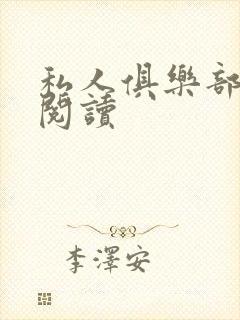 私人俱樂部
閱讀
李澤安